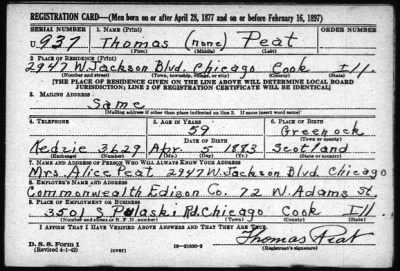 REGISTRATION CARD—(Men born on or after April 28, 1877 and on or before February 16, 1897)
SERIAL NUMBER 1. NAME (Print) ORDER NUMBER
U 937 Thomas (none) Peat
(First) (Middle) (Last)
2. PLACE OF RESIDENCE (Print)
2947 W. Jackson Blvd. Chicago Cook Ill.
(Number and street) (Town, township, village, or city) (County) (State)
[THE PLACE OF RESIDENCE GIVEN ON THE LINE ABOVE WILL DETERMINE LOCAL BOARD
JURISDICTION; LINE 2 OF REGISTRATION CERTIFICATE WILL BE IDENTICAL]
3. MAILING ADDRESS
Same
[Mailing address if other than place indicated on line 2. If same insert word same]
4. TELEPHONE 5. AGE IN YEARS 6. PLACE OF BIRTH
59 Greenock
DATE OF BIRTH (Town or county)
Kedzie 3629 Apr. 5 1883 Scotland
(Exchange) (Number) (Mo.) (Day) (Yr.) (State or country)
7. NAME AND ADDRESS OF PERSON WHO WILL ALWAYS KNOW YOUR ADDRESS
Mrs. Alice Peat 2947 W. Jackson Blvd. Chicago
8. EMPLOYER'S NAME AND ADDRESS
Commonwealth Edison Co. 72 W. Adams St.
9. PLACE OF EMPLOYMENT OR BUSINESS
3501 S. Pulaski Rd. Chicago Cook Ill.
(Number and street or R. F. D. number) (Town) (County) (State)
I AFFIRM THAT I HAVE VERIFIED ABOVE ANSWERS AND THAT THEY ARE TRUE.
Thomas Peat
D. S. S. Form 1 (Registrant's signature)
(Revised 4-1-42) (over)